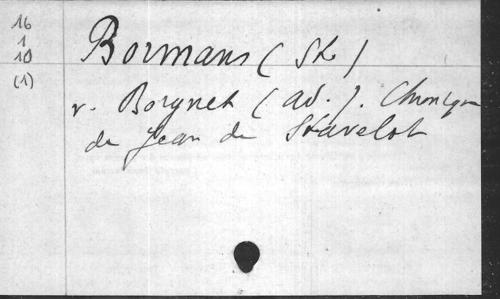 16
1
10
(1)
Bormans (St.)
v. Borgnet (ad.). Chronique
de Jean de Stavelot